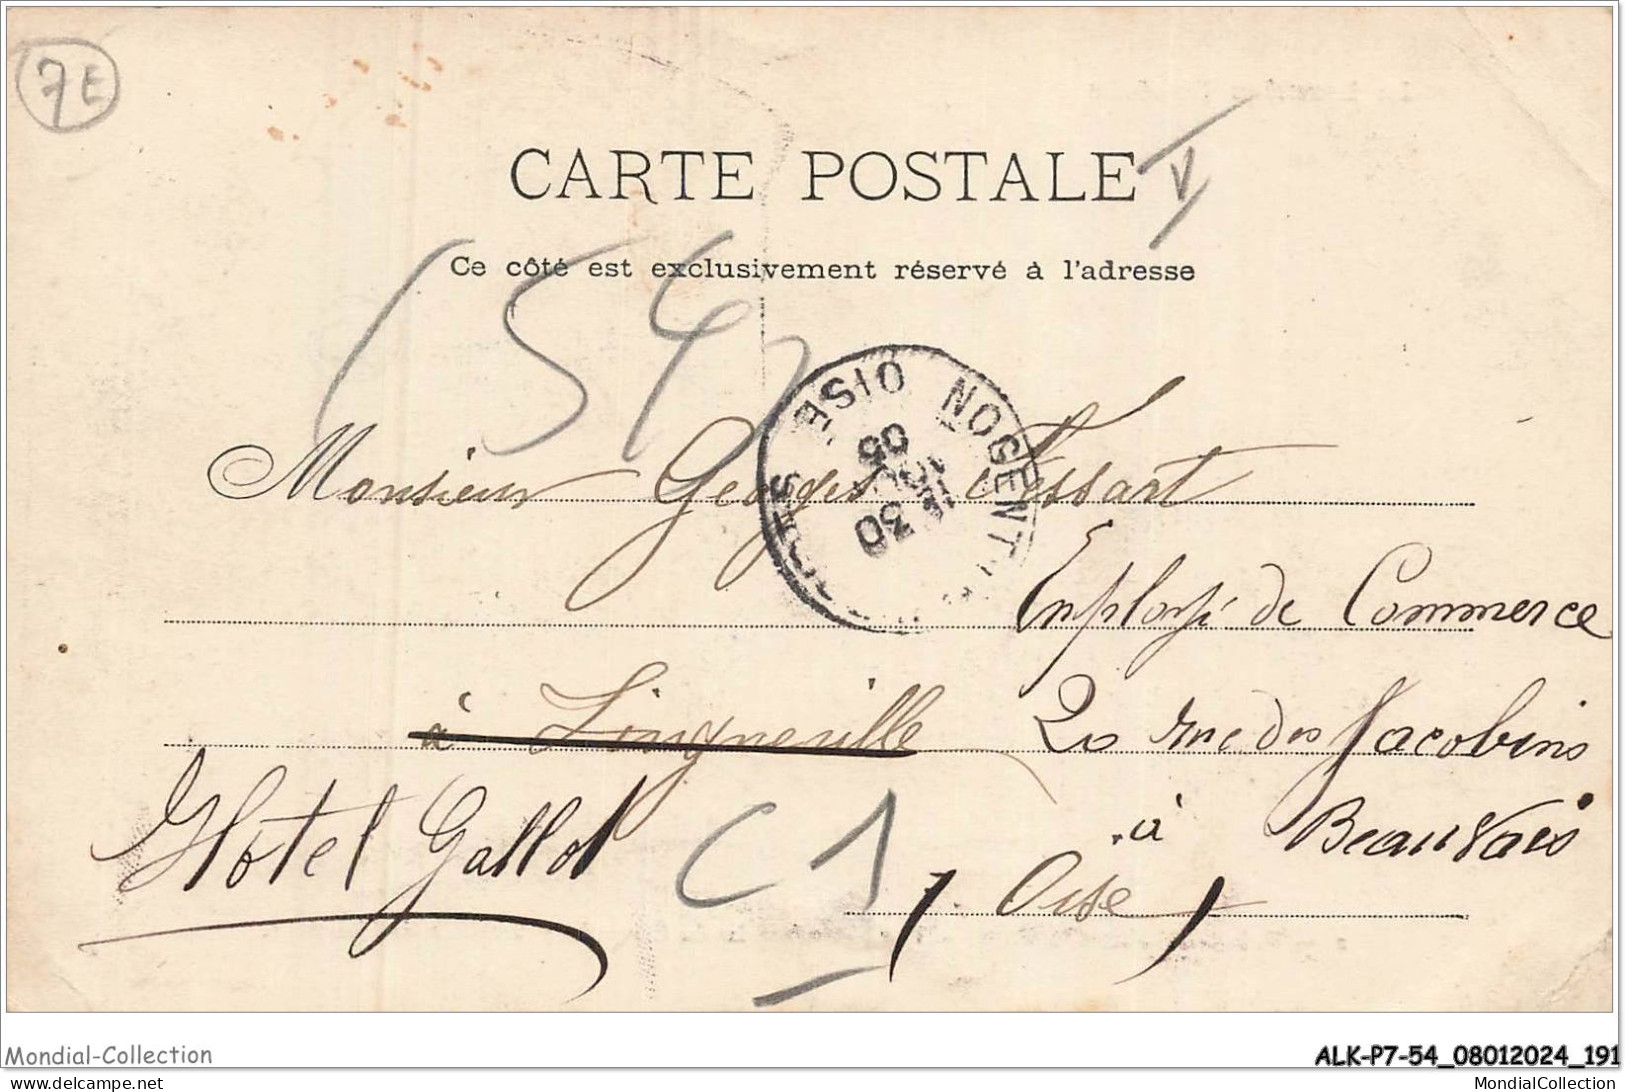 7E
CARTE POSTALE
V
Ce côté est exclusivement réservé à l'adresse
(54)
NOGENT
OISE
30
05
Monsieur Georges Tessart
Employé de Commerce
à Lingneville
20 rue des Jacobins
Hôtel Gallot
à Beauvais
C1
(Oise)
Mondial-Collection
www.delcampe.net
ALK-P7-54_08012024_191
MondialCollection